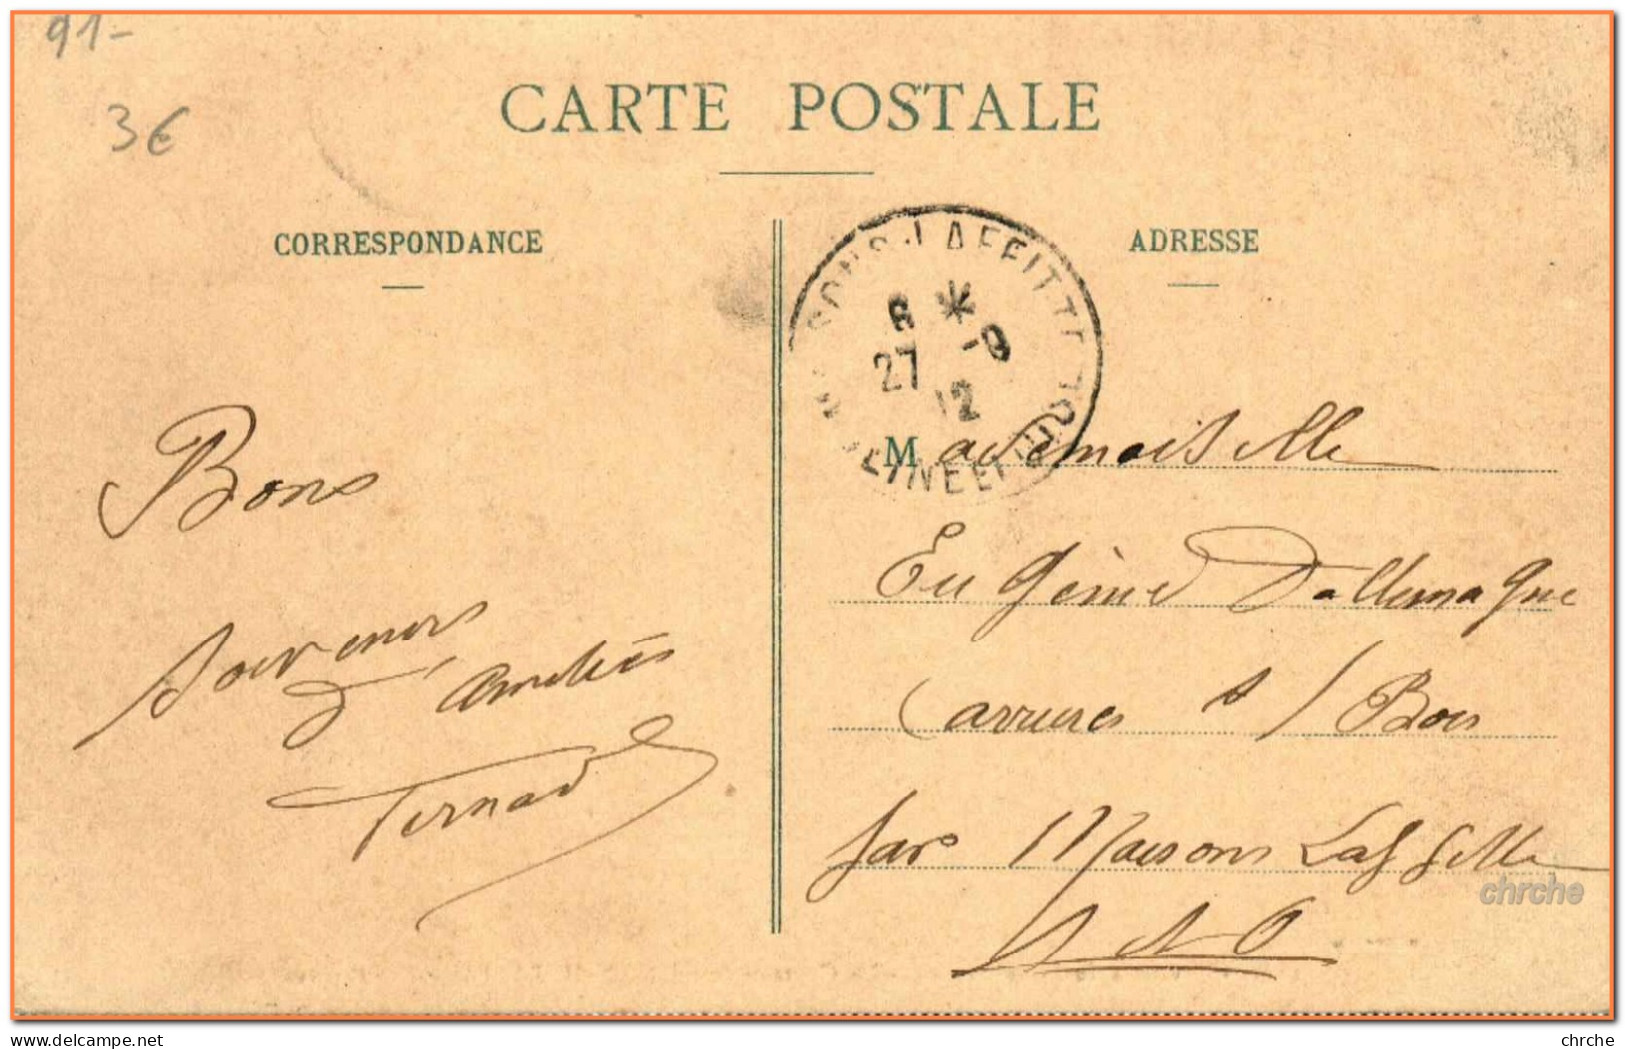 91-
3€
CARTE POSTALE
CORRESPONDANCE
ADRESSE
SONS-LAFFITTE
8 *
27 -9
12
SEINE ET
Bons
Souvenirs
d'amitiés
Fernand
Mademoiselle
Eugénie Dallemagne
Carrières s/ Bois
par Maisons Laffitte
S et O
chrche
www.delcampe.net
chrche